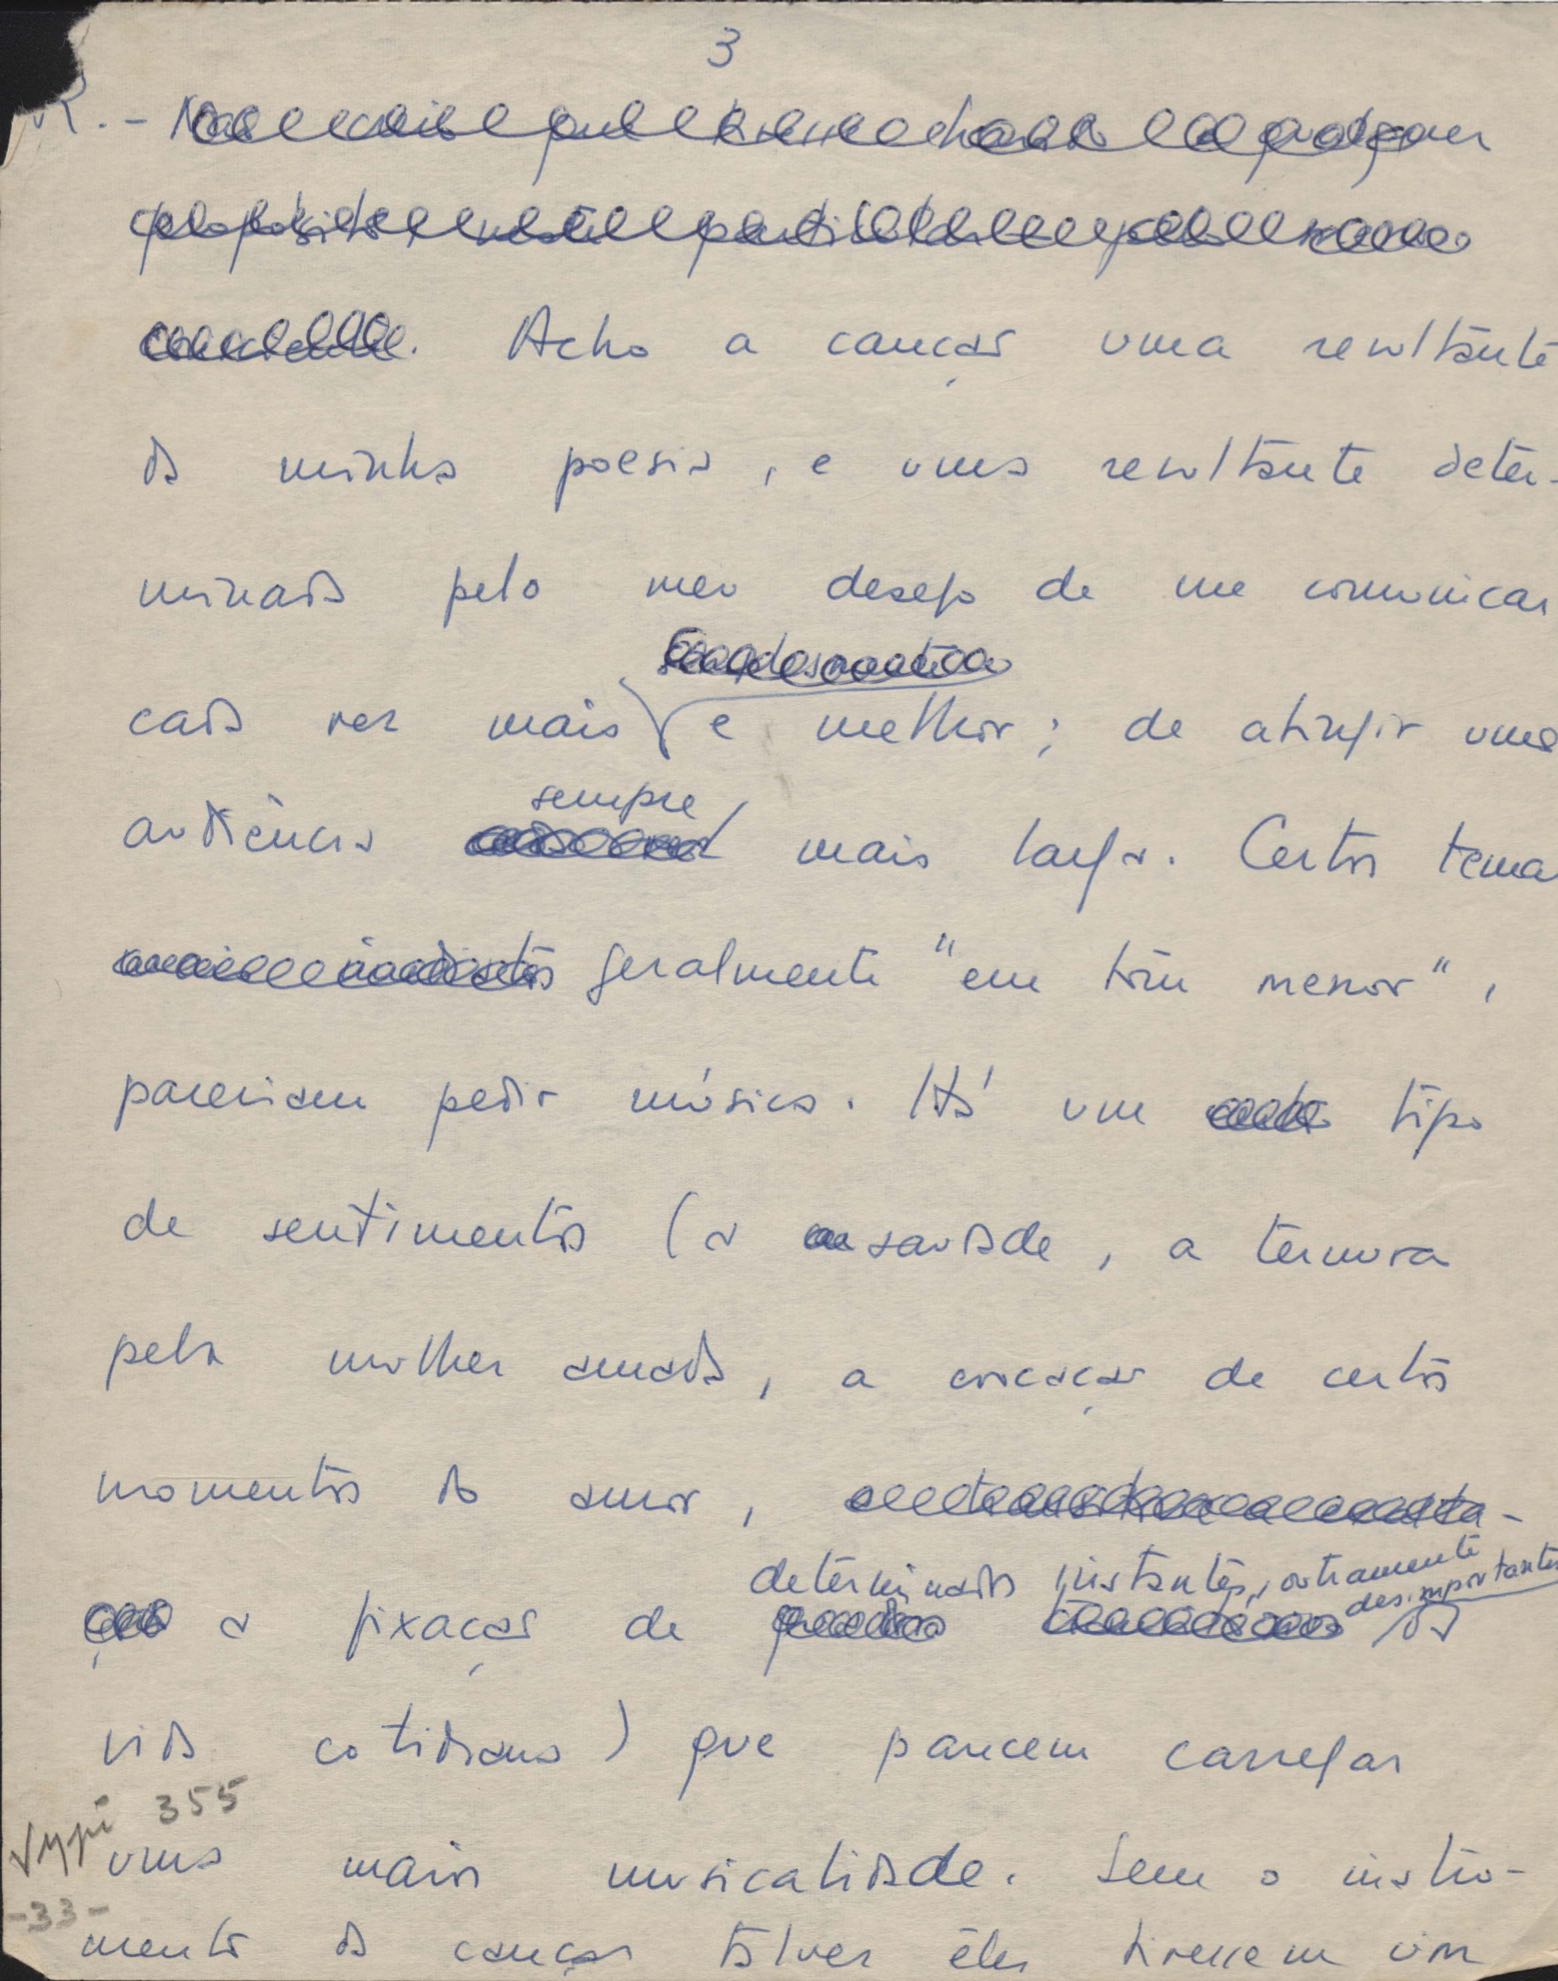 3
R. -
Acho a canção uma resultante
da minha poesia, e uma resultante deter-
minada pelo meu desejo de me comunicar
cada vez mais e melhor; de atingir uma
sempre
audiência mais larga. Certos tema
geralmente "em tom menor",
pareciam pedir música. Há um tipo
de sentimentos (a saudade, a ternura
pela mulher amada, a evocação de certos
momentos do amor,
determinados instantes, outramente
desimportantes
a fixação de da
vida cotidiana) que parecem carregar
Vypi 355
uma maior musicalidade. Sem o instru-
-33-
mento da canção talvez êles tivessem um